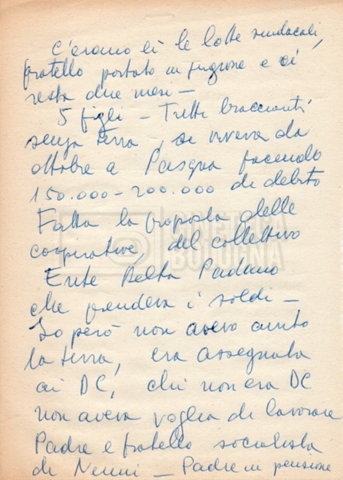 C'erano lì le lotte sindacali,
fratello portato in prigione e ci
resta due mesi –
5 figli – Tutti braccianti
senza terra, si viveva da
ottobre a Pasqua facendo
150.000 – 200.000 di debito
Fatta la proposta delle
cooperative, del collettivo
Ente Delta Padano
che prendeva i soldi –
Io però non avevo avuto
la terra, era assegnata
ai DC, chi non era DC
non aveva voglia di lavorare
Padre e fratello socialista
di Nenni – Padre in pensione